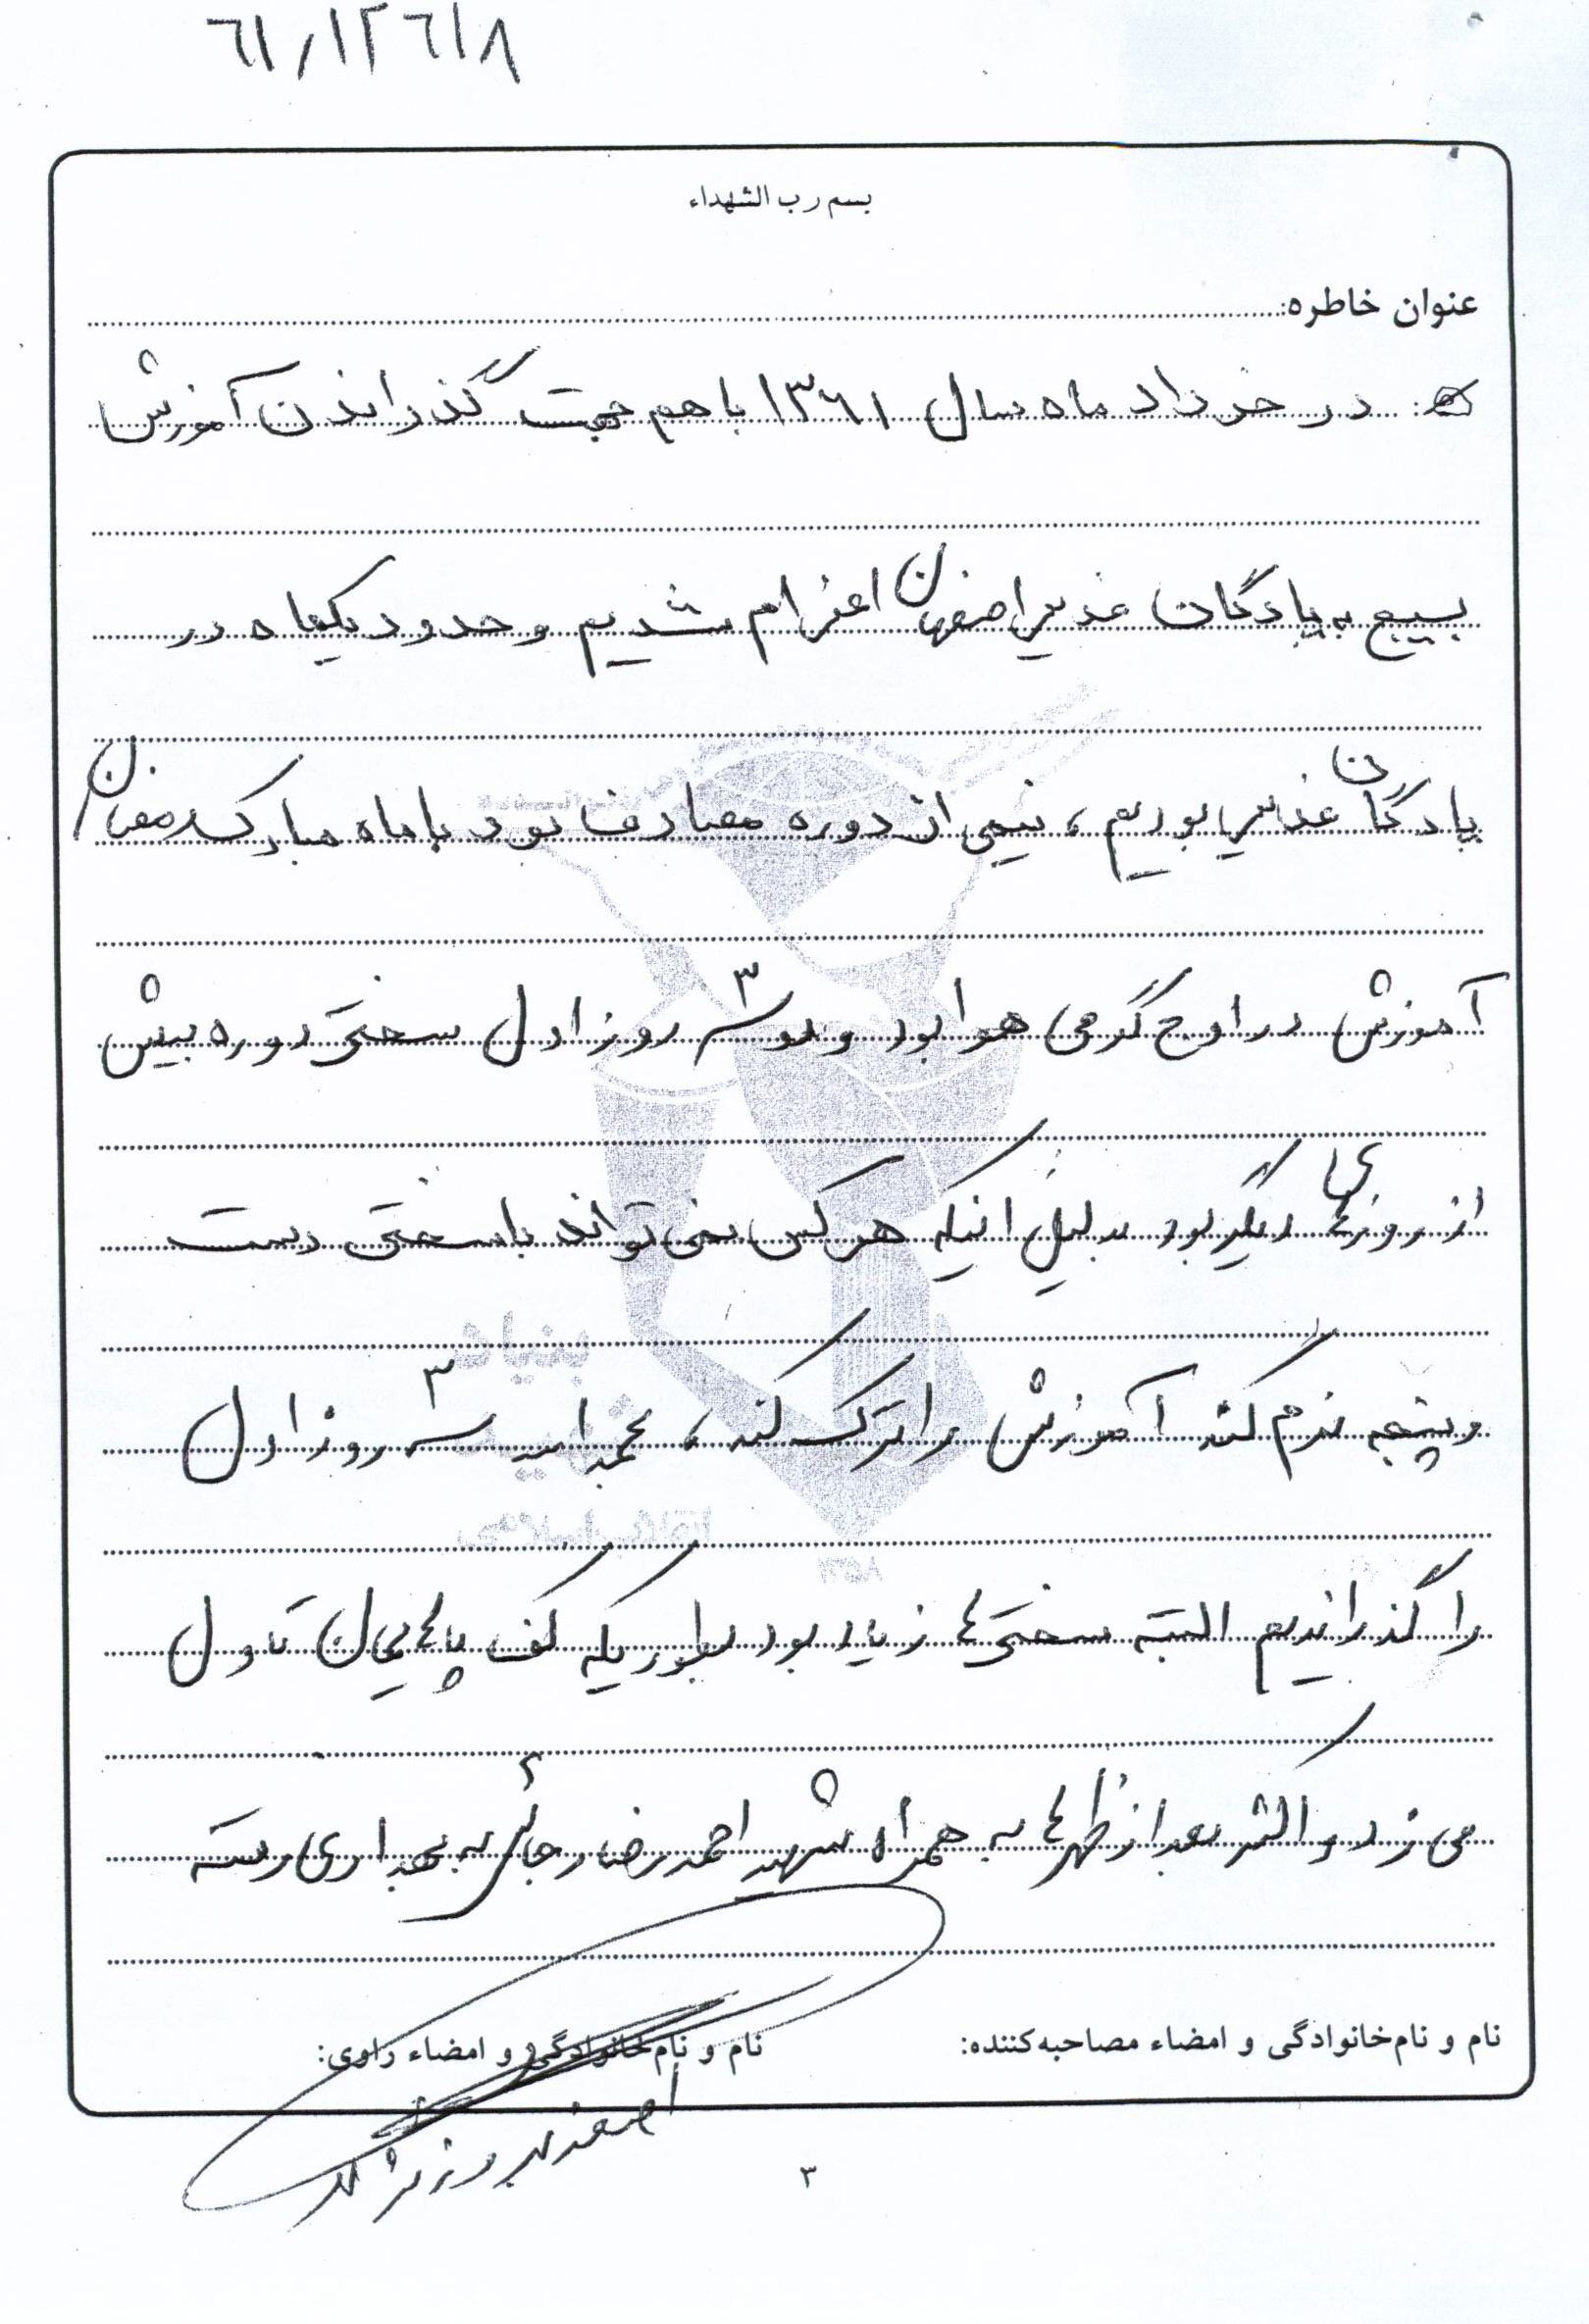 ٦١/١٢٦١٨
بسم رب الشهداء
عنوان خاطره:
در خرداد ماه سال ۱۳۶۱ با هم جهت گذراندن آموزش
بسیج به پادگان غدیر اصفهان اعزام شدیم و حدود یکماه در
پادگان غدیر بودیم، نیمی از دوره مصادف بود با ماه مبارک رمضان
آموزش در اوج گرمی هوا بود و دو سه ۳ روز اول سختی دوره بیش
از روزهای دیگر بود بدلیل اینکه هر کس نمی تواند با سختی دست
و پنجه نرم کند آموزش را ترک کند، بحمدا... سه ۳ روز اول
را گذراندیم البته سختی ها زیاد بود بطوریکه کف پاهایمان تاول
می زد و اکثر بعد از ظهرها به همراه شهید احمدرضا رجائی به بهداری رفته
نام و نام‌خانوادگی و امضاء مصاحبه‌کننده:
نام و نام‌خانوادگی و امضاء راوی:
۳